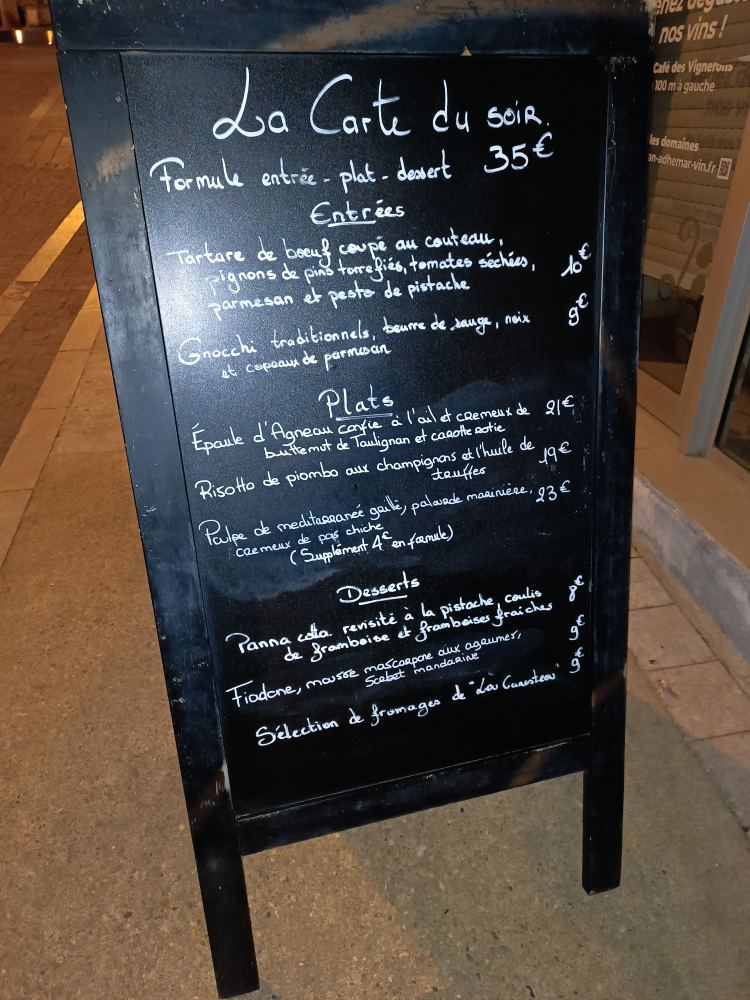 La Carte du soir.
Formule entrée - plat - dessert 35€
Entrées
Tartare de boeuf coupé au couteau,
pignons de pins torrefiés, tomates séchées, 10€
parmesan et pesto de pistache
Gnocchi traditionnels, beurre de sauge, noix 9€
et copeaux de parmesan
Plats
Épaule d'Agneau confie à l'ail et cremeux de 21€
butternut de Taulignan et carotte rotie
Risotto de piombo aux champignons et l'huile de 19€
truffes
Poulpe de mediterranée grillé, palourde marinière, 23€
cremeux de pois chiche
(Supplément 4€ en formule)
Desserts
Panna cotta revisité à la pistache, coulis 8€
de framboise et framboises fraiches
Fiadone, mousse mascarpone aux agrumes, 9€
Sorbet mandarine
Sélection de fromages de "La" 9€
nos vins !
Café des Vignerons
100 m à gauche
les domaines
an-adhemar-vin.fr